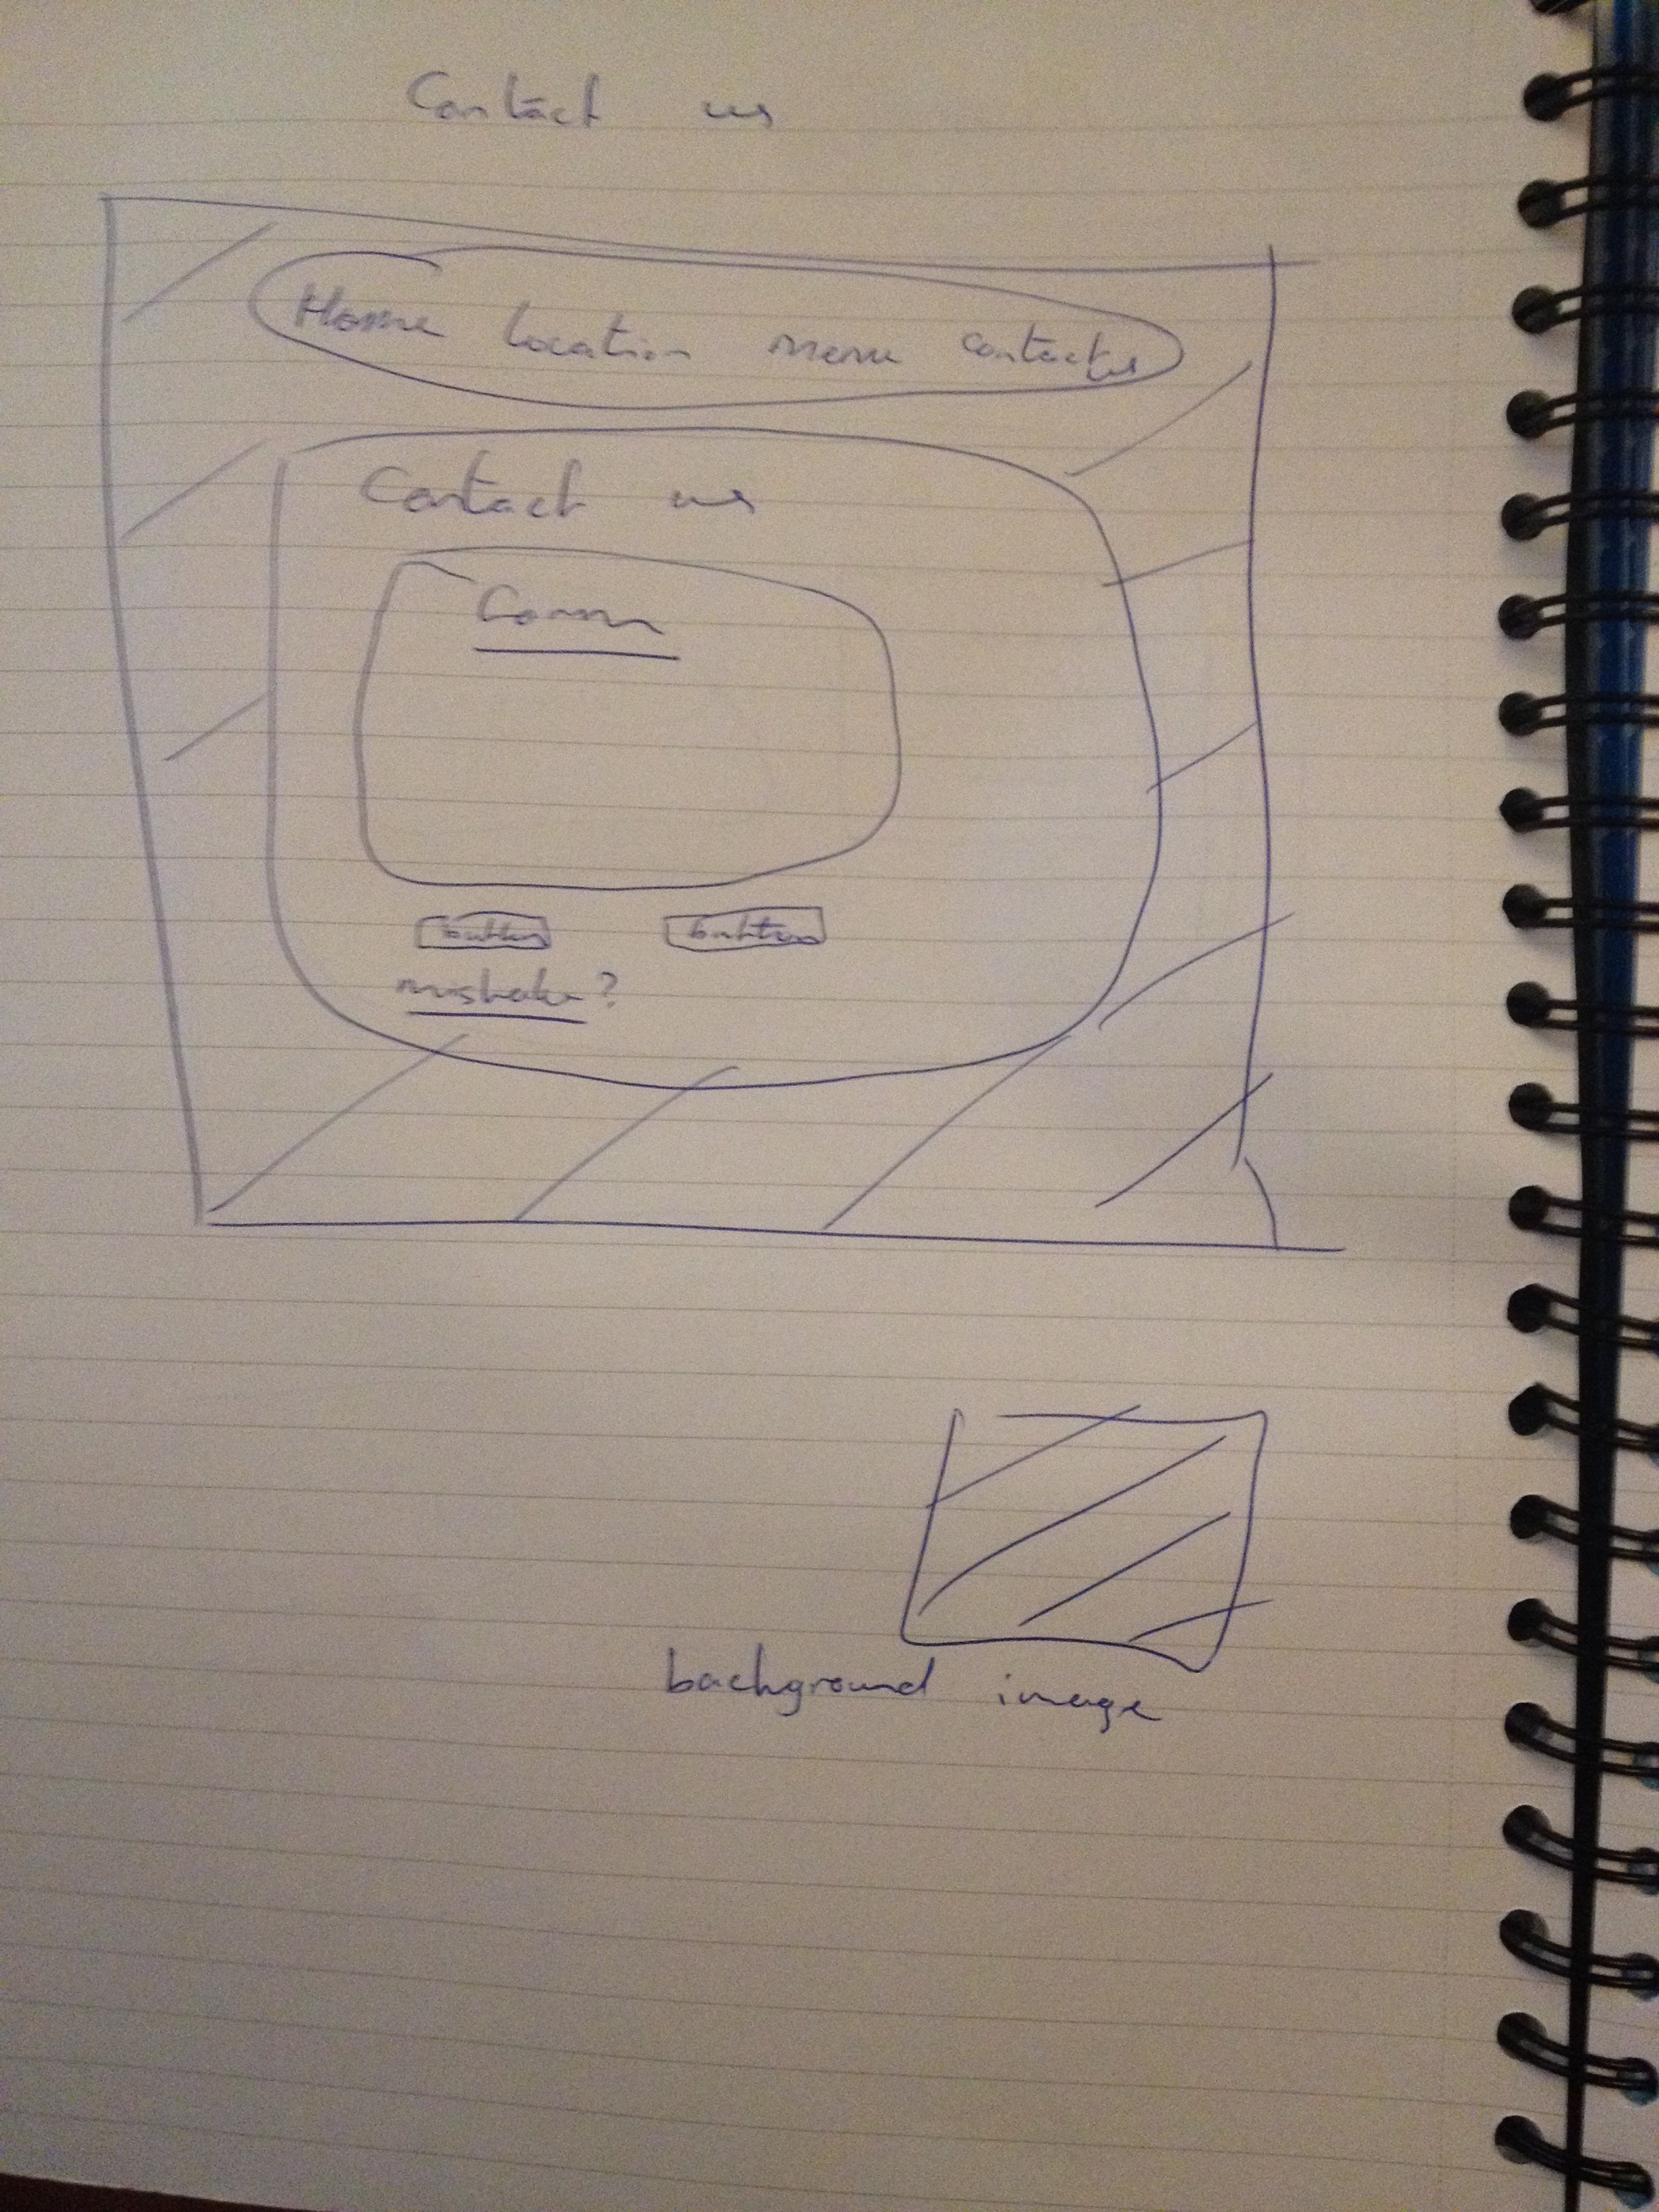 Contact us
Home Location menu contact us
Contact us
button button
mistake?
background image